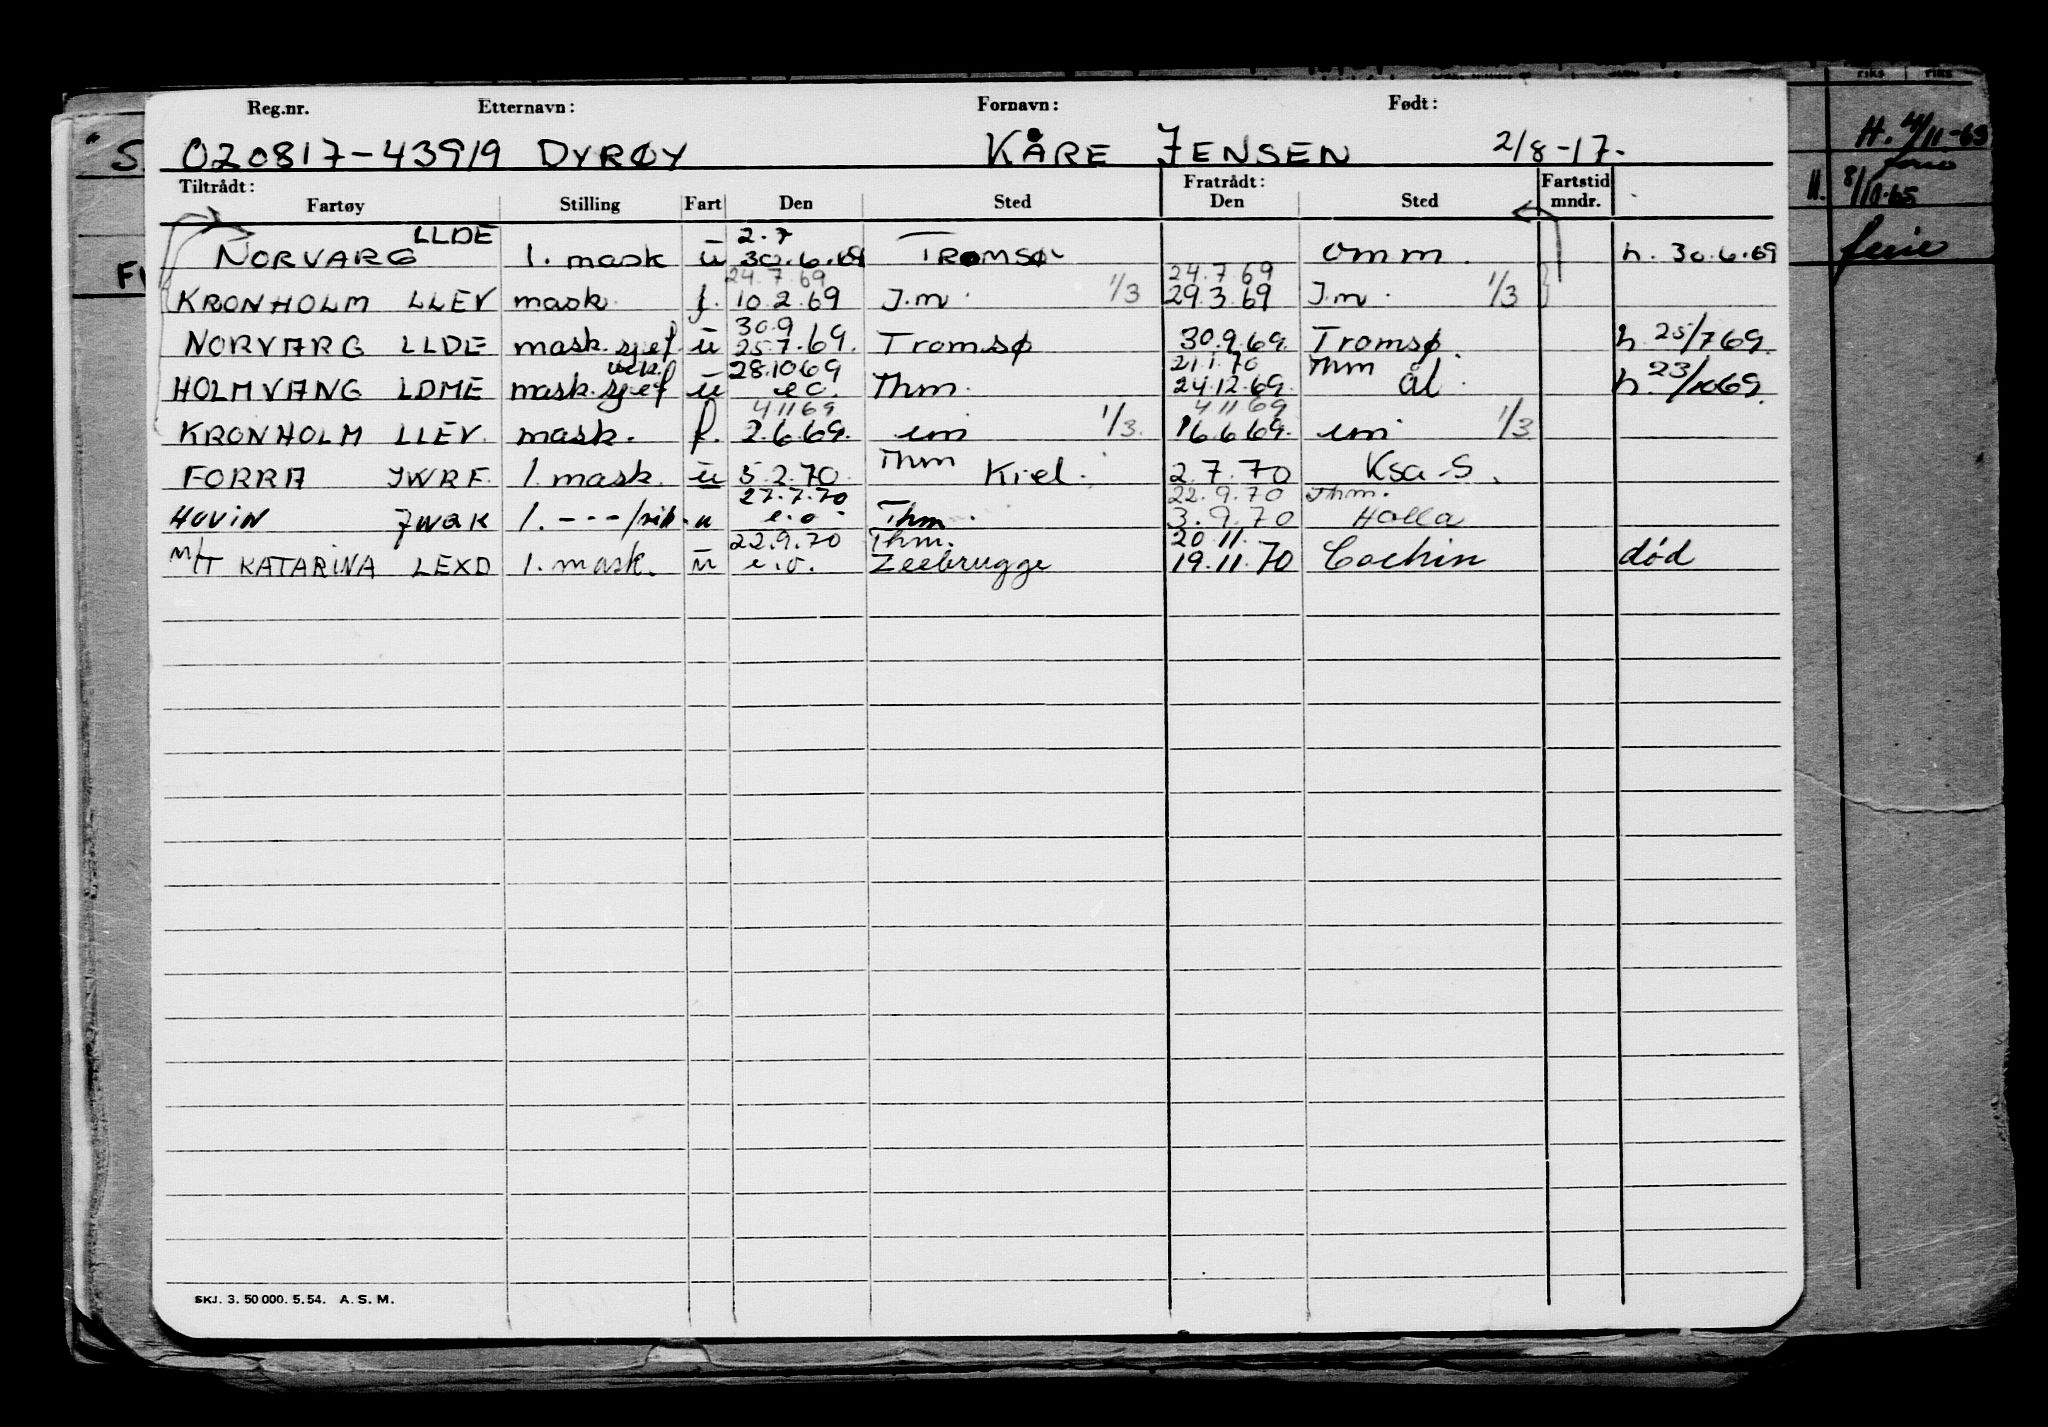 Reg.nr. Etternavn: Fornavn: Født:
020817-43919 DYRØY KÅRE JENSEN 2/8-17.
Tiltrådt: Fratrådt: Fartstid
Fartøy Stilling Fart Den Sted Den Sted mndr.
LLDE 2.7
NORVARG 1. mask ū 30.6.69 TROMSØ omm. h. 30.6.69
24.7.69 24.7.69
KRONHOLM LLEV mask. f. 10.2.69 I.m. 1/3 29.3.69 I.m. 1/3
30.9
NORVARG LLDE mask.sjef. ū 25.7.69. Tromsø 30.9.69. Tromsø. h. 25/7 69.
vik. 28.10 69 21.1.70 Thm
HOLMVANG LDME mask.sjef ū e o. Thm. 24.12.69. Ål. h. 23/10 69.
4 11 69 4 11 69
KRONHOLM LLEV. mask. f. 2.6.69. im 1/3. 16.6.69. im 1/3
Thm
FORRA JWRF. 1. mask. ū 5.2.70. Kiel. 2.7.70 Ksa-S.
27.7.70 22.9.70 Thm.
HOVIN JWQK 1. - - - /vik. u e.o. Thm. 3.9.70 Holla
22.9.70 Thm. 20 11.
M/T KATARINA LEXD 1. mask. ū e.o. Zeebrugge 19.11.70 Cochin død
SKJ. 3. 50 000. 5. 54. A. S. M.
H. 4/11-63
H. 8/10.65
ferie